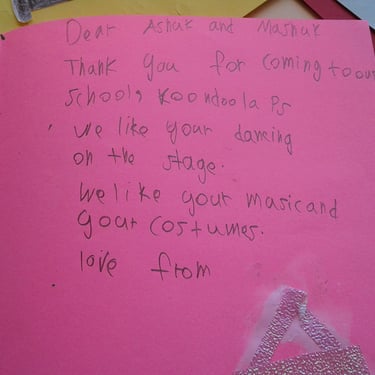 Dear Ashak and Mashuk
Thank you for coming to our
schools Koondoola Ps
we like your dancing
on the stage.
We like your music and
your costumes.
love from